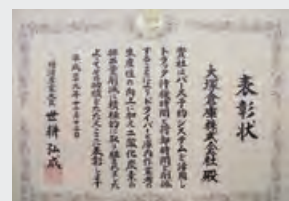 表彰状
大塚倉庫株式会社殿
貴社はバース予約システムを活用し
トラック待機時間と荷卸時間を削減
することによりドライバーと庫内作業者の
生産性の向上に加え二酸化炭素の
排出量削減に積極的に取り組まれた
よってその功績をたたえここに表彰します
平成二十九年十二月十三日
経済産業大臣 世耕弘成